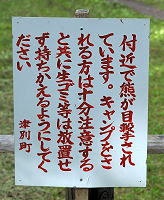 付近で熊が目撃され
ています。キャンプをさ
れる方は十分注意する
と共に生ゴミ等は放置せ
ず持ちかえるようにしてく
ださい。
津別町